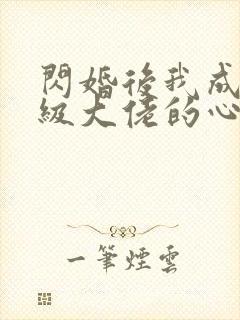 閃婚後我成
級大佬的心
一筆煙雲